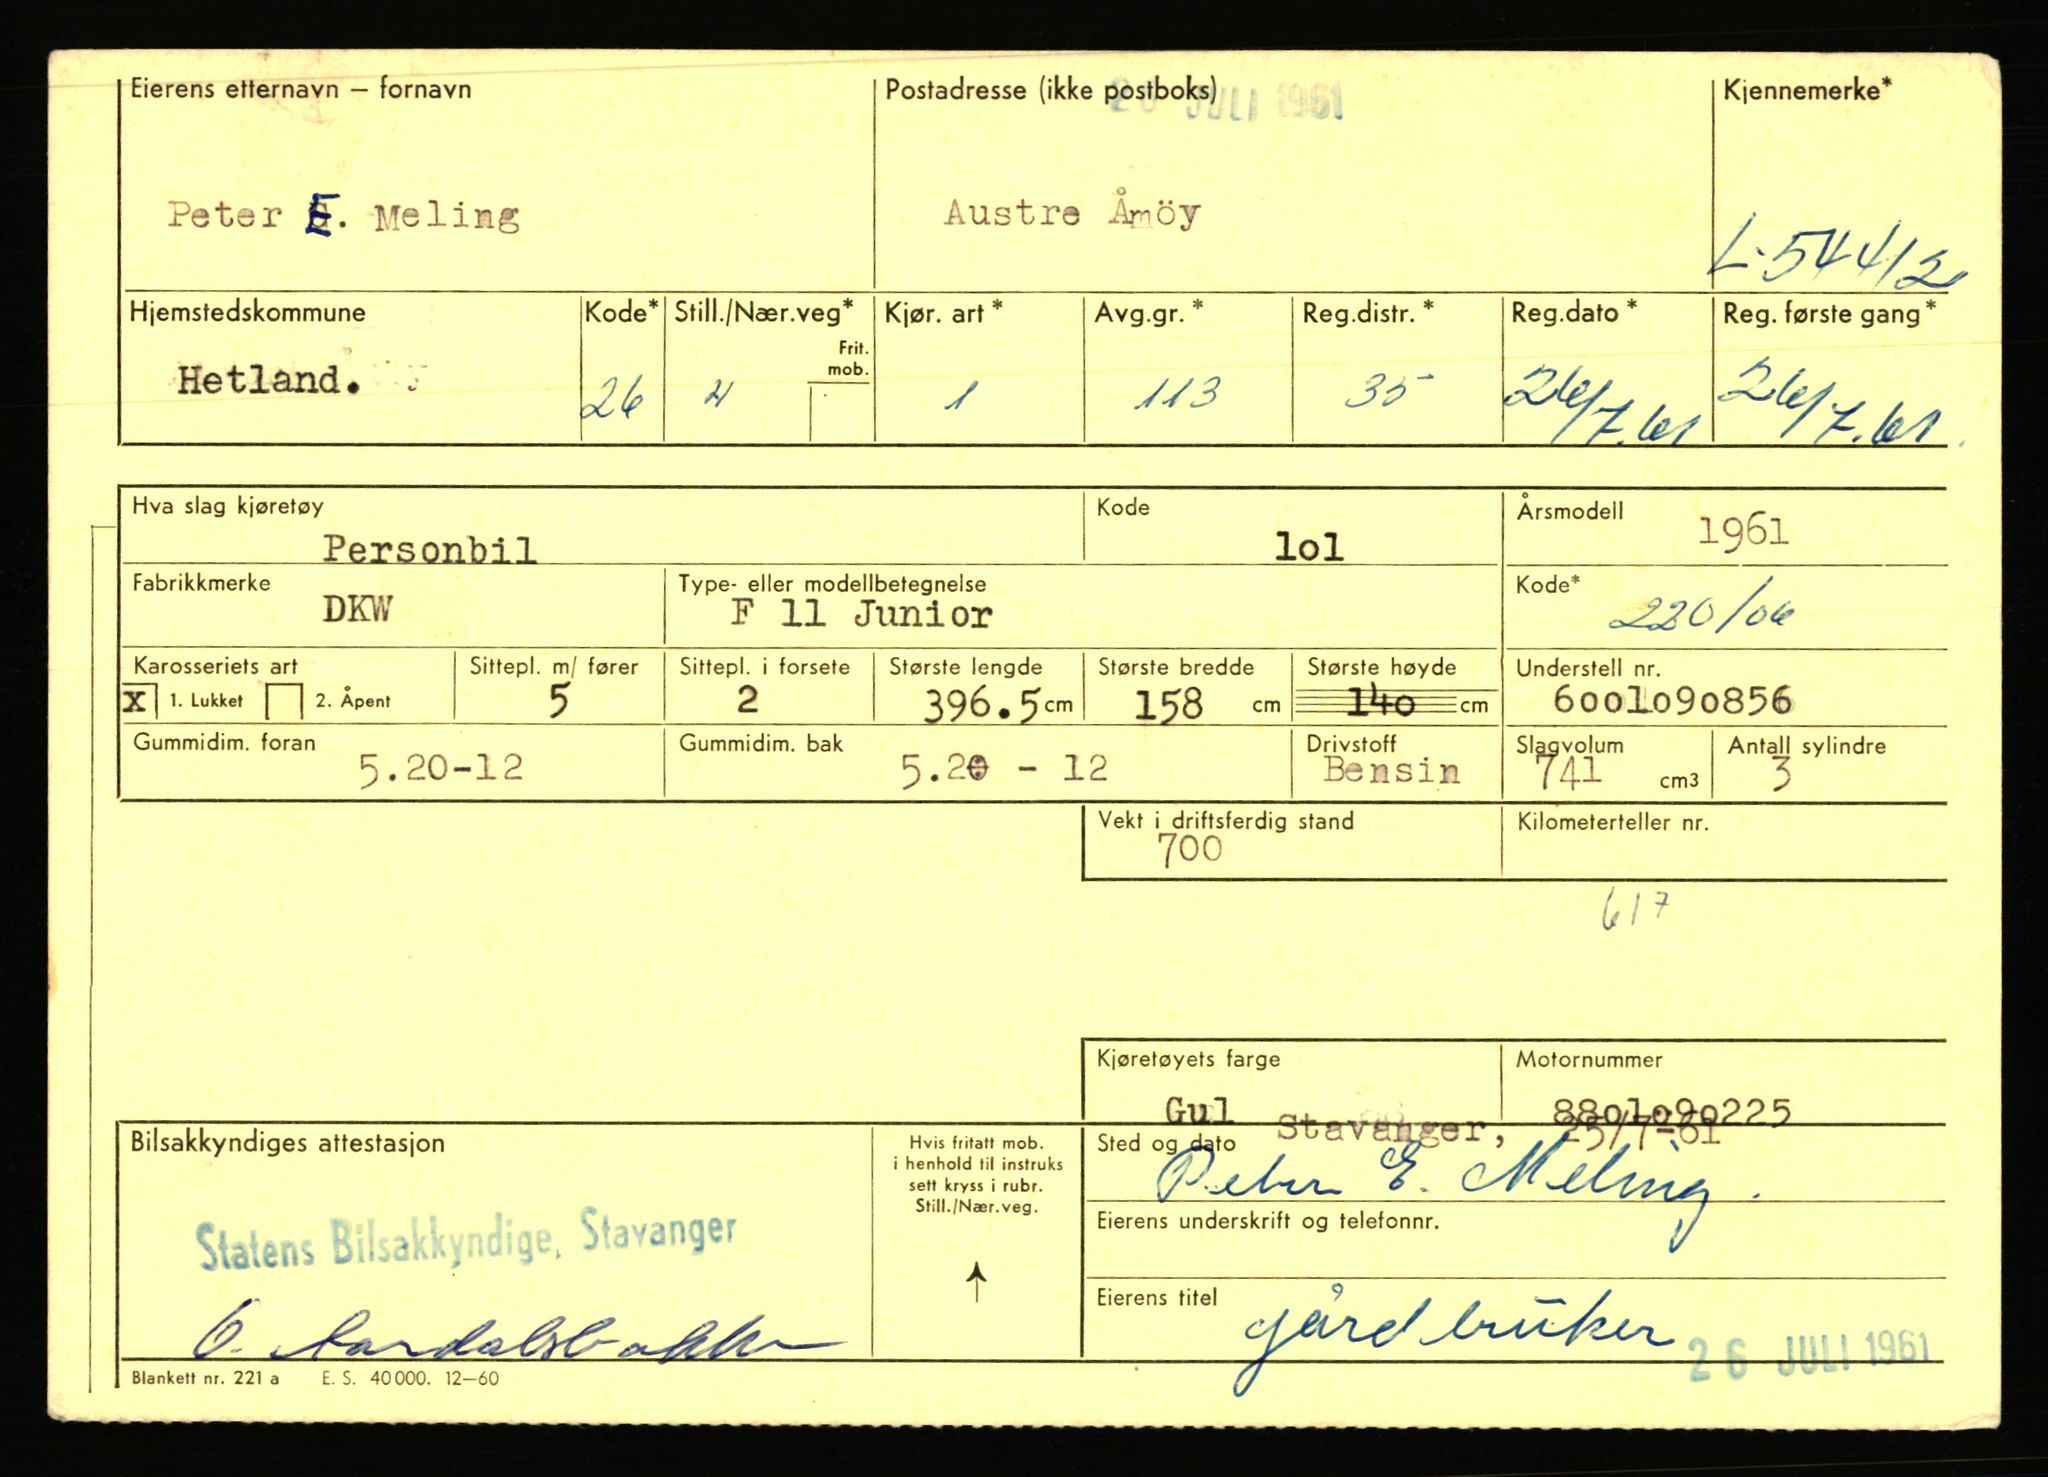 Eierens etternavn – fornavn Postadresse (ikke postboks) Kjennemerke*
JULI 1961
Peter E. Meling Austre Åmöy
L-54412
Hjemstedskommune Kode* Still./Nær.veg* Kjør. art* Avg.gr.* Reg.distr.* Reg.dato* Reg. første gang*
Frit.
mob.
Hetland. 26 4 1 113 35 26/7.61 26/7.61
Hva slag kjøretøy Kode Årsmodell
Personbil lol 1961
Fabrikkmerke Type- eller modellbetegnelse Kode*
DKW F 11 Junior 220/06
Karosseriets art Sittepl. m/ fører Sittepl. i forsete Største lengde Største bredde Største høyde Understell nr.
X 1. Lukket 2. Åpent 5 2 396.5 cm 158 cm 140 cm 6001090856
Gummidim. foran Gummidim. bak Drivstoff Slagvolum Antall sylindre
5.20-12 5.20 - 12 Bensin 741 cm3 3
Vekt i driftsferdig stand Kilometerteller nr.
700
617
Kjøretøyets farge Motornummer
Gul 8801090225
Stavanger, 25/7-61
Bilsakkyndiges attestasjon Hvis fritatt mob. Sted og dato
i henhold til instruks
sett kryss i rubr.
Still./Nær.veg.
Peter E. Meling.
Eierens underskrift og telefonnr.
Statens Bilsakkyndige, Stavanger
Eierens titel
gårdbruker
26 JULI 1961
Blankett nr. 221 a E. S. 40 000. 12–60